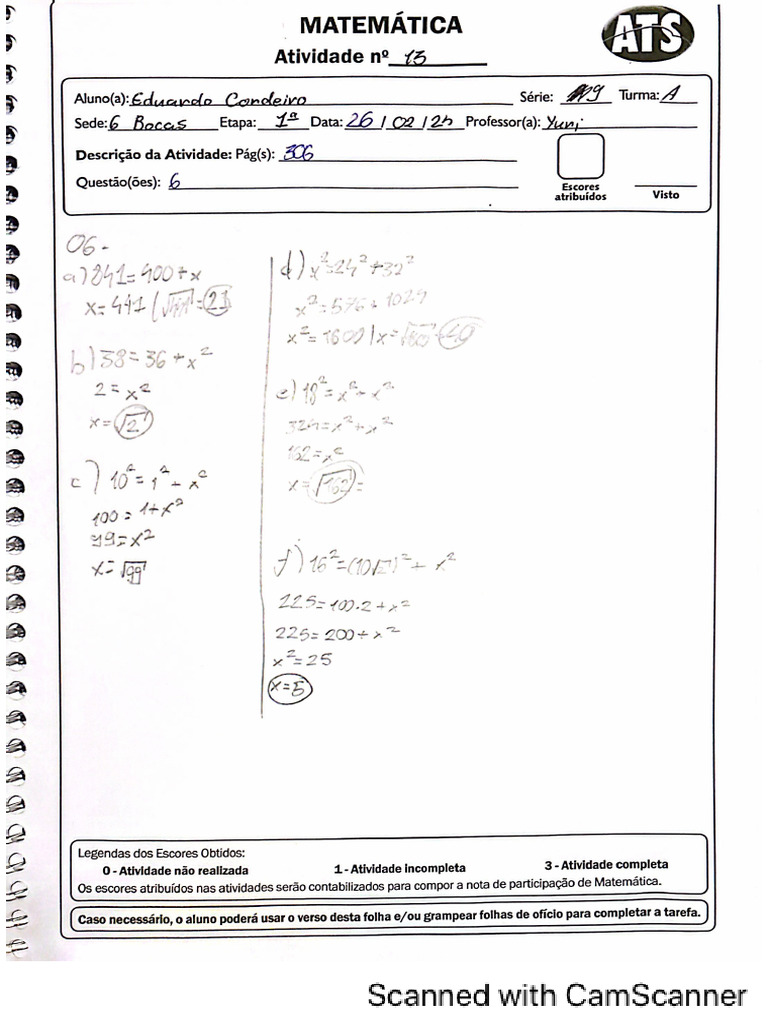 MATEMÁTICA
ATS
Atividade nº 13
Aluno(a): Eduardo Cordeiro Série: 9 Turma: A
Sede: 6 Bocas Etapa: 1ª Data: 26 / 02 / 25 Professor(a): Yuri
Descrição da Atividade: Pág(s): 306
Questão(ões): 6
Escores atribuídos
Visto
06-
a) 841 = 400 + x
x = 441 | √441 = 21
b) 38 = 36 + x²
2 = x²
x = √2
c) 10² = 1² + x²
100 = 1 + x²
99 = x²
x = √99
d) x² = 24² + 32²
x² = 576 + 1024
x² = 1600 | x = 40
e) 18² = x² + x²
324 = x² + x²
162 = x²
x = √162 =
f) 16² = (10√2)² + x²
225 = 100.2 + x²
225 = 200 + x²
x² = 25
x = 5
Legendas dos Escores Obtidos:
0 - Atividade não realizada 1 - Atividade incompleta 3 - Atividade completa
Os escores atribuídos nas atividades serão contabilizados para compor a nota de participação de Matemática.
Caso necessário, o aluno poderá usar o verso desta folha e/ou grampear folhas de ofício para completar a tarefa.
Scanned with CamScanner